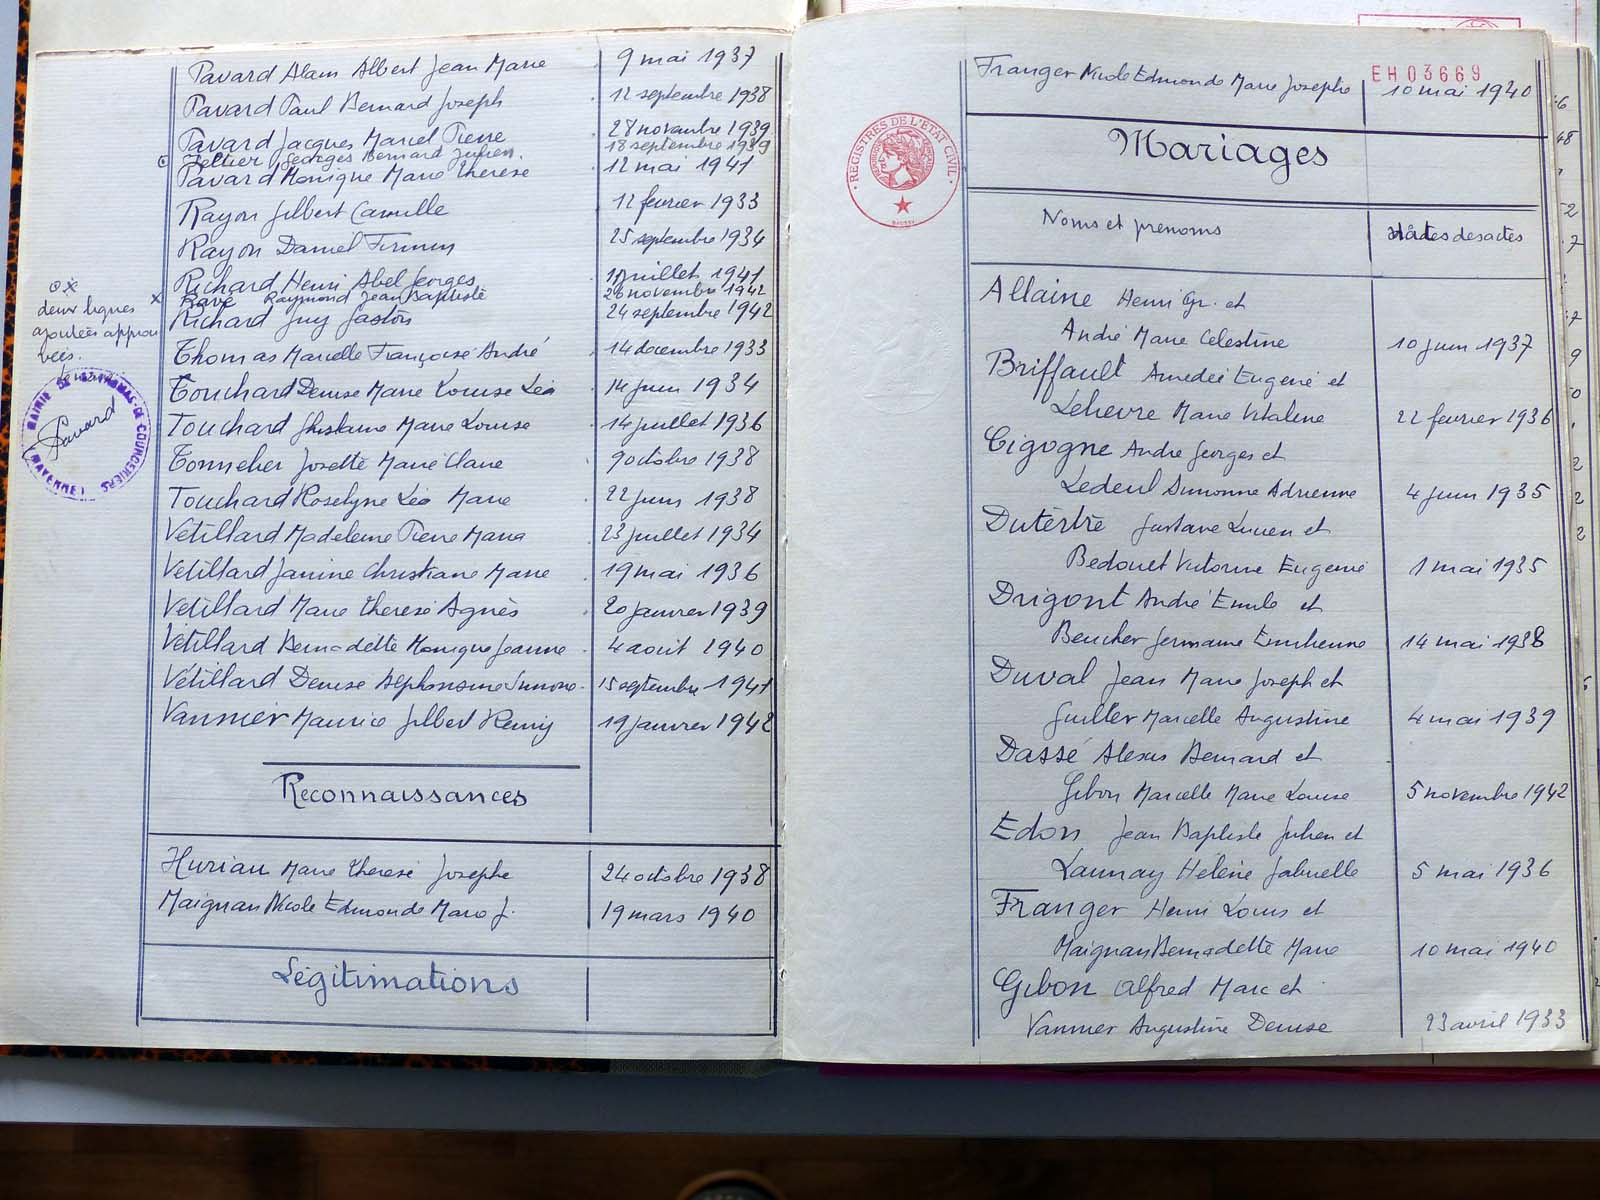 Pavard Alain Albert Jean Marie 9 mai 1937
Pavard Paul Bernard Joseph 12 septembre 1938
Pavard Jacques Marcel Pierre 28 novembre 1939
Peltier Georges Bernard Julien. 18 septembre 1939
Pavard Monique Marie Thérèse 12 mai 1941
Rayon Gilbert Camille 12 février 1933
Rayon Daniel Firmin 25 septembre 1934
Richard Henri Abel Georges juillet 1941
x Ravé Raymond Jean Baptiste 26 novembre 1942
Richard Guy Gaston 24 septembre 1942
Thomas Marcelle Françoise André 14 decembre 1933
Touchard Denise Marie Louise Léa 14 juin 1934
Touchard Ghislaine Marie Louise 14 juillet 1936
Tonnelier Josette Marie Claire 9 octobre 1938
Touchard Roselyne Léa Marie 22 juin 1938
Vétillard Madeleine Pierre Maria 23 juillet 1934
Vétillard Janine Christiane Marie 19 mai 1936
Vétillard Marie Thérèse Agnès 20 janvier 1939
Vétillard Bernadette Monique Jeanne 4 août 1940
Vétillard Denise Alphonsine Simone 15 septembre 1941
Vannier Maurice Gilbert Remy 19 janvier 1942
deux lignes
ajoutées approu
vées.
MAIRIE DE ST-THOMAS-DE-COURCERIERS (MAYENNE)
Pavard
Reconnaissances
Huriau Marie Thérèse Josèphe 24 octobre 1938
Maignan Nicole Edmonde Marie J. 19 mars 1940
Légitimations
EH03669
Franger Nicole Edmonde Marie Josèphe 10 mai 1940
REGISTRES DE L'ETAT CIVIL
Mariages
Noms et prenoms dates des actes
Allaine Henri Gr. et
André Marie Célestine 10 juin 1937
Briffault Amedée Eugène et
Marie Vitaline 22 février 1936
Cigogne André Georges et
Ledeul Simonne Adrienne 4 juin 1935
Dutertre Gustave Lucien et
Bedouet Victorine Eugenie 1 mai 1935
Drigont André Emile et
Beucher Germaine Emilienne 14 mai 1938
Duval Jean Marie Joseph et
Guiller Marcelle Augustine 4 mai 1939
Dassé Alexis Bernard et
Gibon Marcelle Marie Louise 5 novembre 1942
Edon Jean Baptiste Julien et
Launay Hélène Gabrielle 5 mai 1936
Franger Henri Louis et
Maignan Bernadette Marie 10 mai 1940
Gibon Alfred Marc et
Vannier Augustine Denise 23 avril 1933